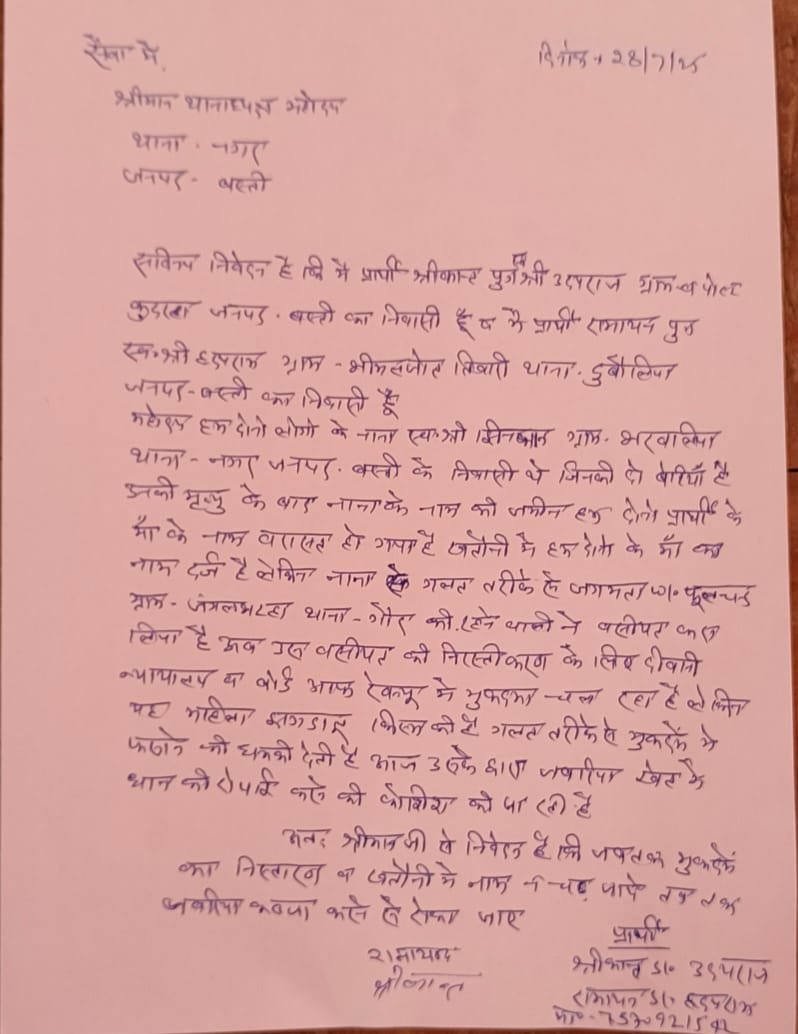 सेवा में,
दिनांक, 28/7/25
श्रीमान थानाध्यक्ष महोदय
थाना - नगर
जनपद - बस्ती
सविनय निवेदन है कि मै प्रार्थी श्रीकान्त पुत्र स्व श्री उदयराज ग्राम व पोस्ट
कुदरहा जनपद - बस्ती का निवासी हूँ व मै प्रार्थी रामायन पुत्र
स्व० श्री हृदयराम ग्राम - तिवारी थाना - दुबौलिया
जनपद - बस्ती का निवासी हूँ
महोदय हम दोनो लोगो के नाना स्व० श्री ग्राम - भरवालिया
थाना - नगर जनपद - बस्ती के निवासी थे जिनकी दो बेटियाँ है
उनकी मृत्यु के बाद नाना के नाम की जमीन हम दोनो प्रार्थी के
माँ के नाम वरासत हो गया है खतौनी मे हम दोनो के माँ का
नाम दर्ज है लेकिन नाना से गलत तरीके से फूलचन्द
ग्राम - थाना - गौर की रहने वाली ने वसीयत करा
लिया है अब उस वसीयत की निरस्तीकरण के लिए दीवानी
न्यायालय व बोर्ड आफ रेवन्यू मे मुकदमा चल रहा है लेकिन
यह महिला झगडालू किस्म की है गलत तरीके से मुकदमें मे
फसाने की धमकी देती है आज उसके द्वारा जबरिया खेत मे
धान की रोपाई करने की कोशिश की जा रही है
अतः श्रीमान जी से निवेदन है कि जबतक मुकदमें
का निस्तारण व खतौनी मे नाम न चढ़ जाये तब तक
जबरिया कब्जा करने से रोका जाए
प्रार्थी
रामायन
श्रीकान्त
श्रीकान्त S/o उदयराज
रामायन S/o हृदयराम
मो०-